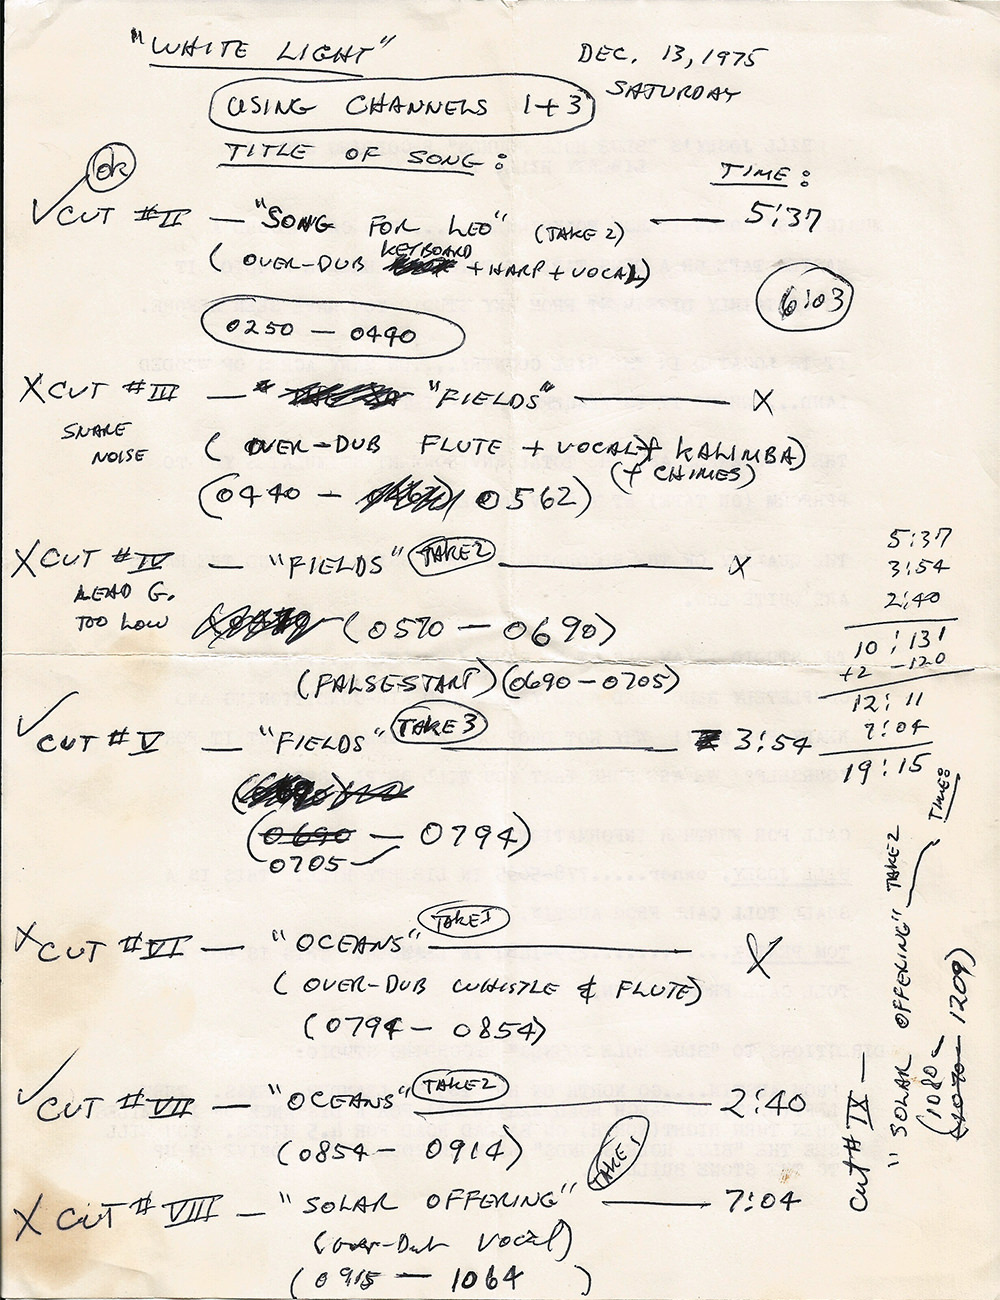 "WHITE LIGHT"
DEC. 13, 1975
SATURDAY
USING CHANNELS 1+3
TITLE OF SONG:
TIME:
OK
✓CUT #II — "SONG FOR LEO" (TAKE 2) — 5:37
(OVER-DUB KEYBOARD + HARP + VOCAL)
6:03
0250 — 0440
X CUT #III — "FIELDS" — X
SNARE
NOISE
(OVER-DUB FLUTE + VOCAL + KALIMBA)
(+ CHIMES)
(0440 — 0562)
X CUT #IV — "FIELDS" TAKE 2 — X
LEAD G.
TOO LOW
(0570 — 0690)
(FALSE START) (0690-0705)
✓ CUT #V — "FIELDS" TAKE 3 — 3:54
(0690 — 0794)
0705
X CUT #VI — "OCEANS" TAKE I — X
(OVER-DUB WHISTLE & FLUTE)
(0794 — 0854)
✓ CUT #VII — "OCEANS" TAKE 2 — 2:40
(0854 — 0914)
X CUT #VIII — "SOLAR OFFERING" TAKE 1 — 7:04
(over-Dub vocal)
(0915 — 1064)
5:37
3:54
2:40
10:131
+2 -120
12:11
7:04
19:15
CUT #IX — "SOLAR OFFERING" TAKE 2 — TIME:
(1080 —
1070 — 1209)